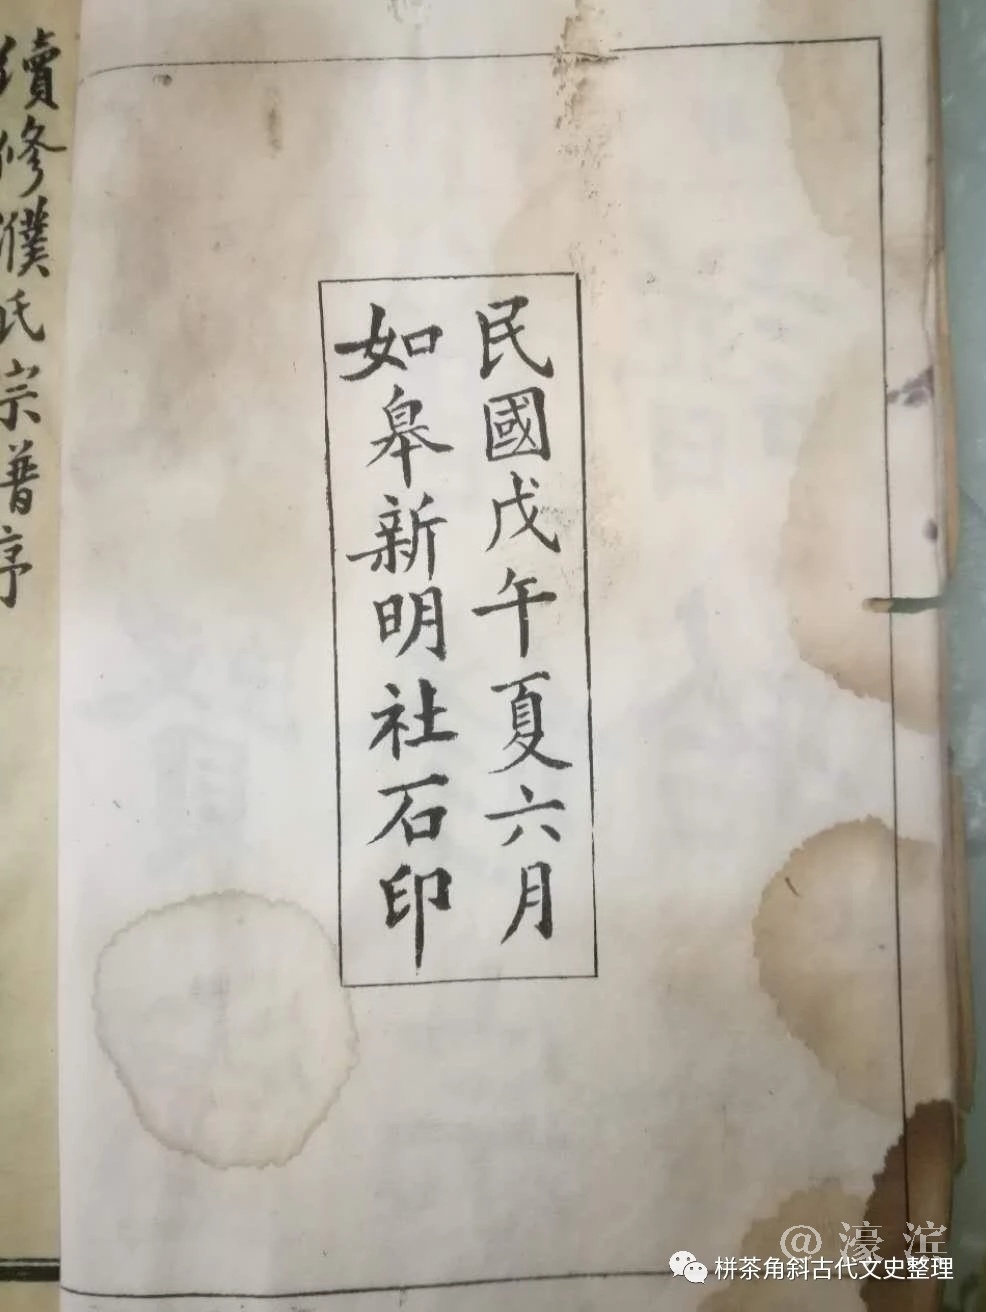 民國戊午夏六月
如皋新明社石印
續修濮氏宗普序
@濠滨
栟茶角斜古代文史整理